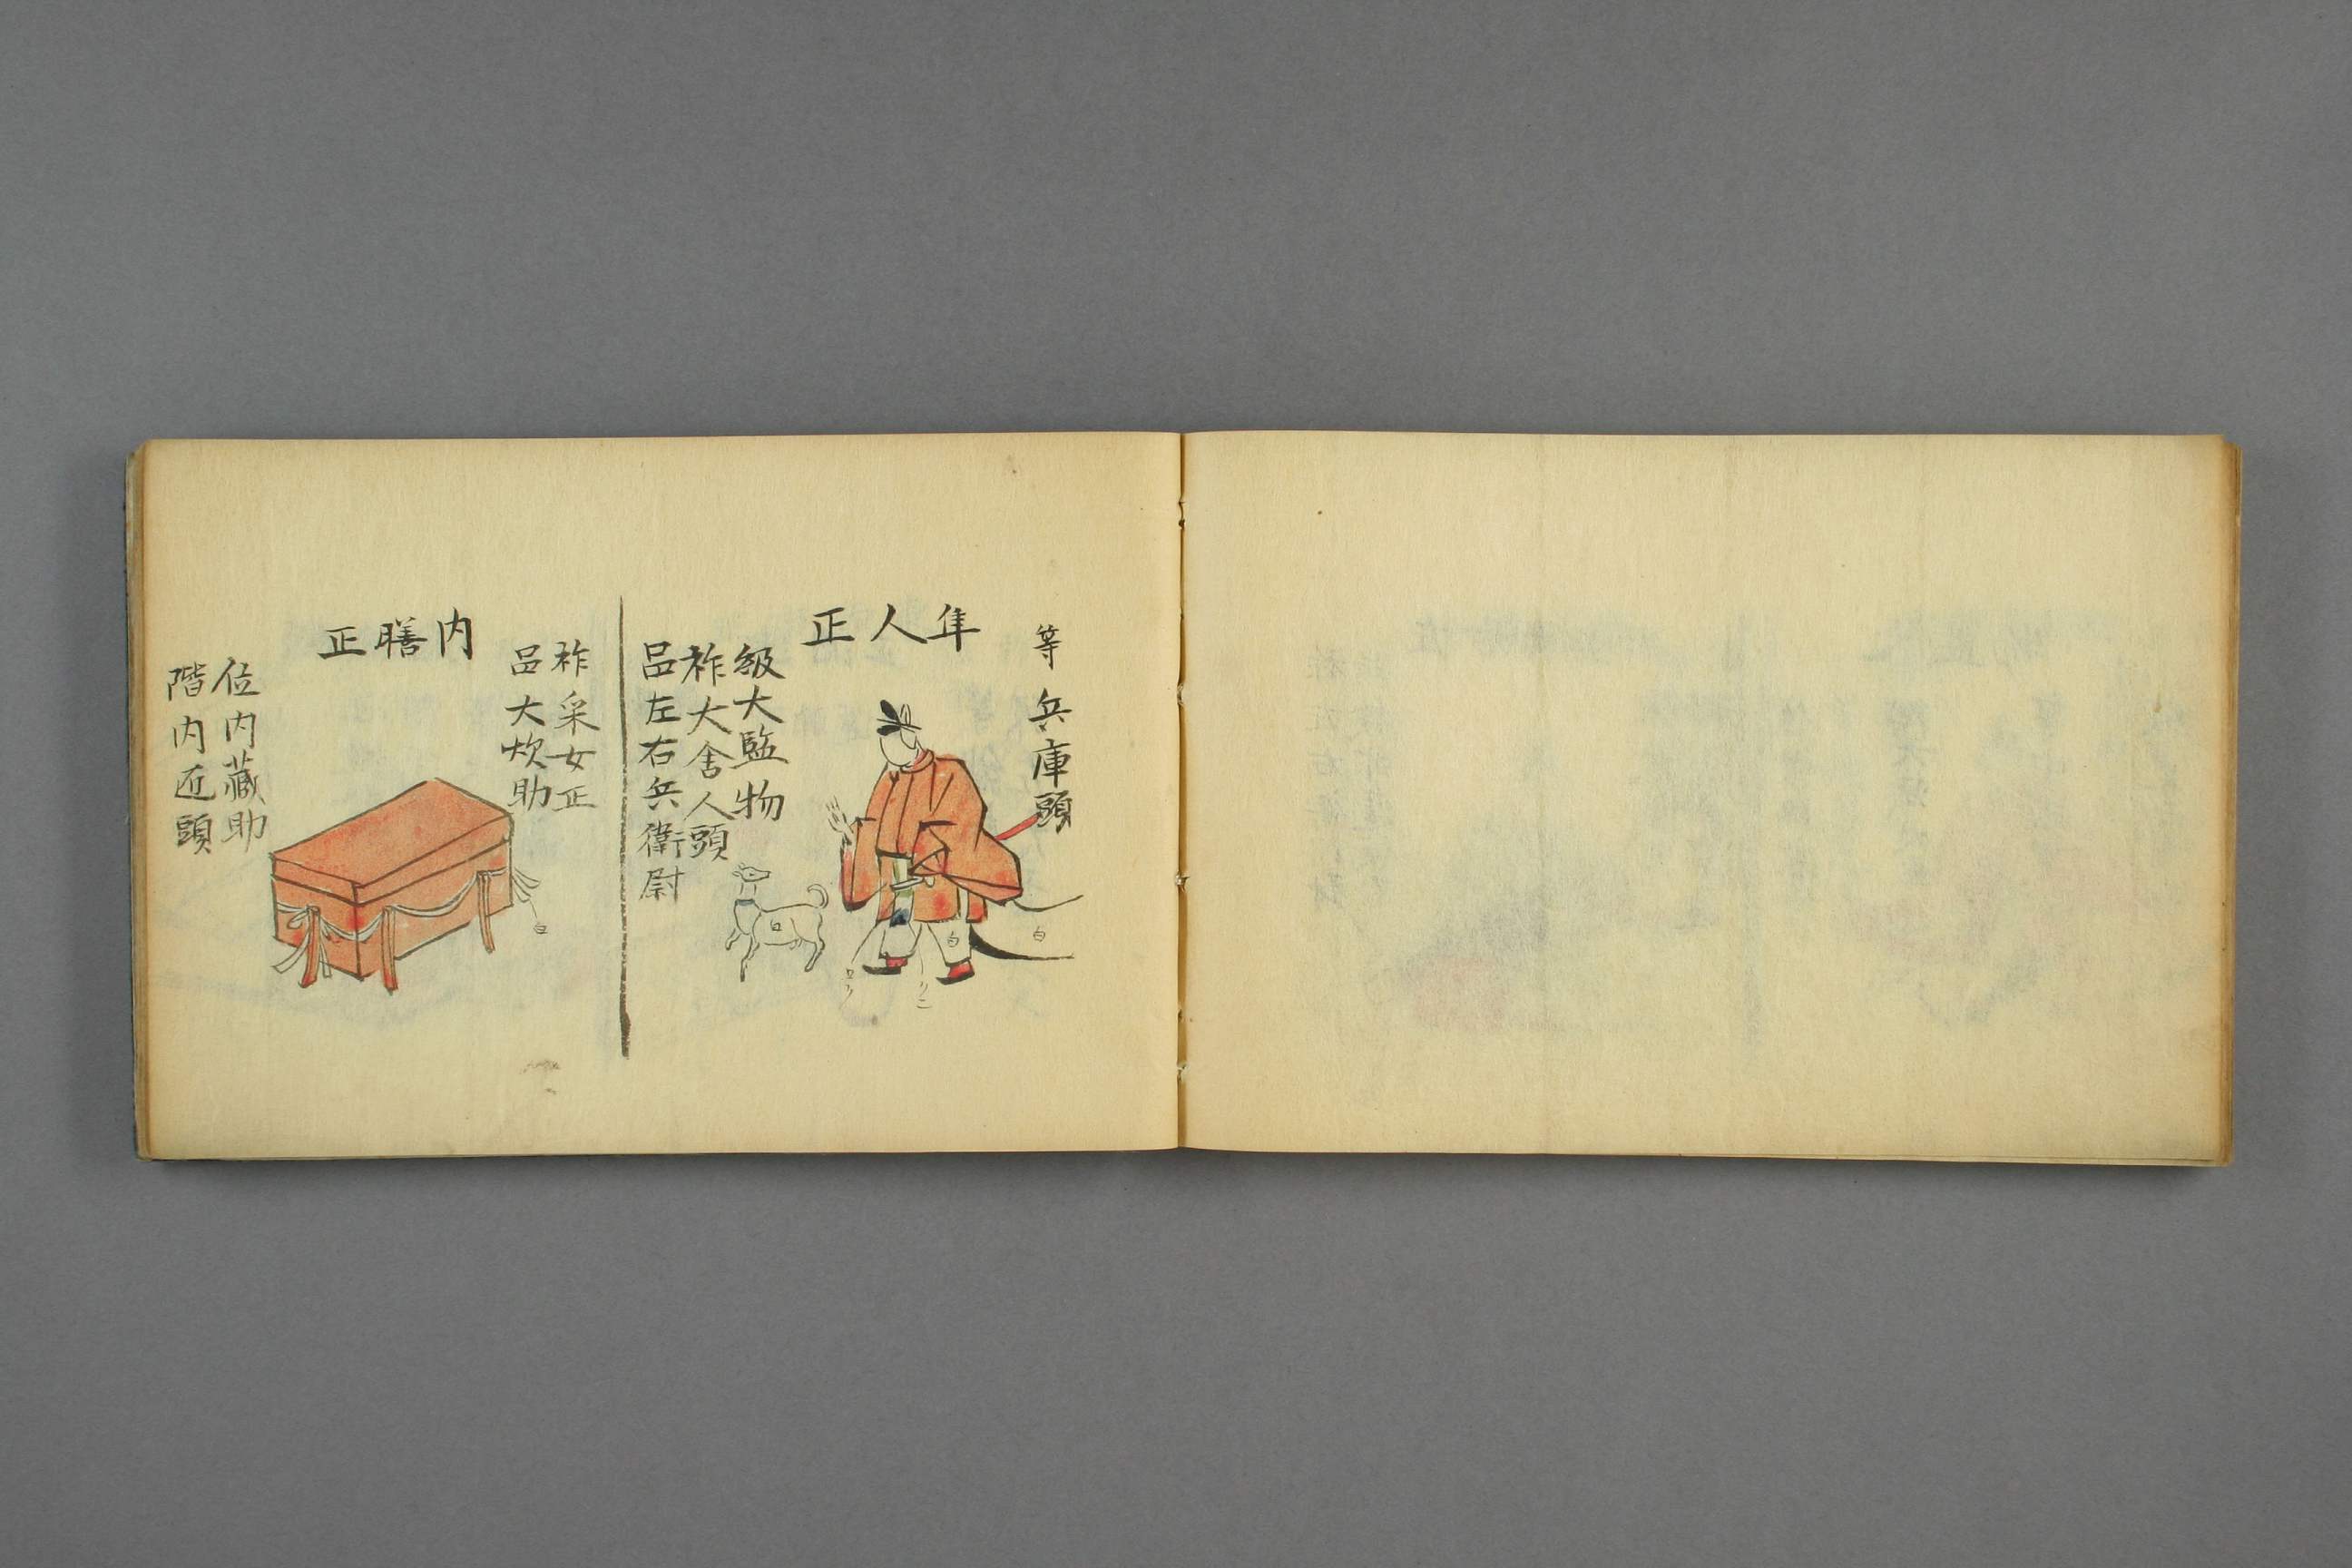 等 兵庫頭
隼人正
級 大監物
祚 大舎人頭
品 左右兵衛尉
祚 采女正
品 大炊助
内膳正
位 内蔵助
階 内近頭
白
白
白
白